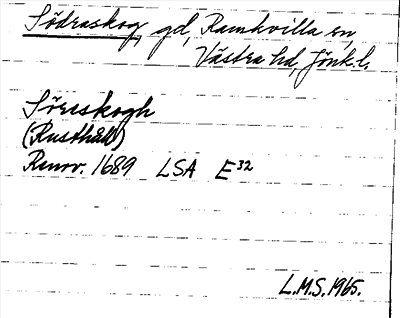 Södraskog, gd, Ramkvilla sn,
Västra hd, Jönk.l.
Söreskogh
(Rusthåll)
Renov. 1689 LSA E32
L.M.S. 1965.